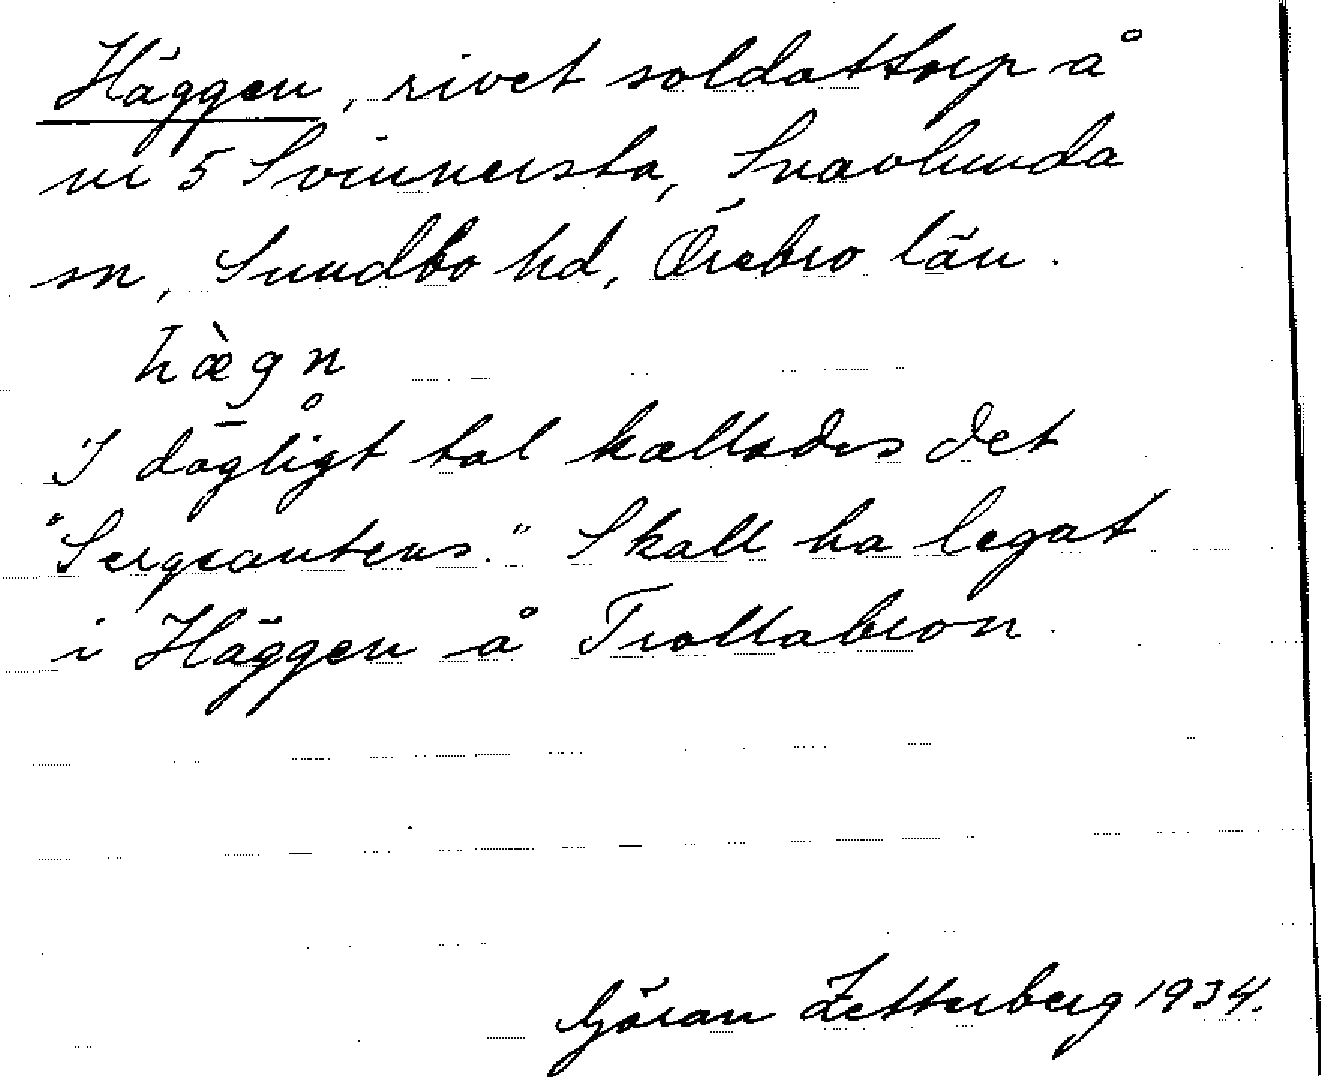 Häggen, rivet soldattorp å
nr 5 Svinnersta, Snavlunda
sn, Sundbo hd, Örebro län.
hægn
I dagligt tal kallades det
"Sergeantens." Skall ha legat
i Häggen å Trollabron.
Göran Zetterberg 1934.